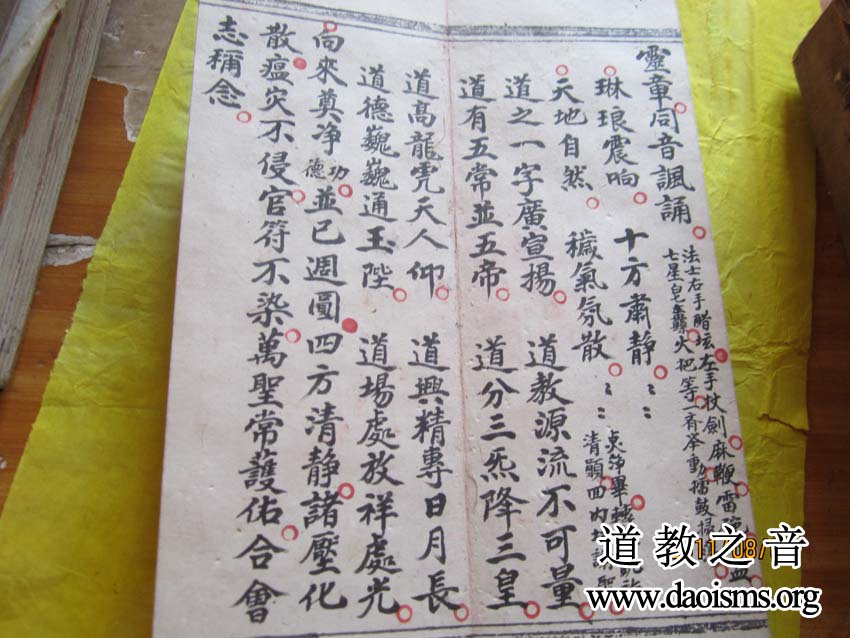 靈章同音諷誦
法士右手醋壜左手杖劍麻鞭雷
七星皂纛火把等一齊答動擂鼓掃
琳琅震响 十方肅靜〻〻
天地自然 穢氣氛散〻〻
奠净畢
清領四
道之一字廣宣揚 道教源流不可量
道有五常並五帝 道分三炁降三皇
道高龍虎天人仰 道興精專日月長
道德巍巍通玉陛 道場處放祥處光
向來奠净功德並已週圓四方清靜諸壓化
散瘟灾不侵官符不染萬聖常護佑合會
志稱念
道教之音
www.daoisms.org